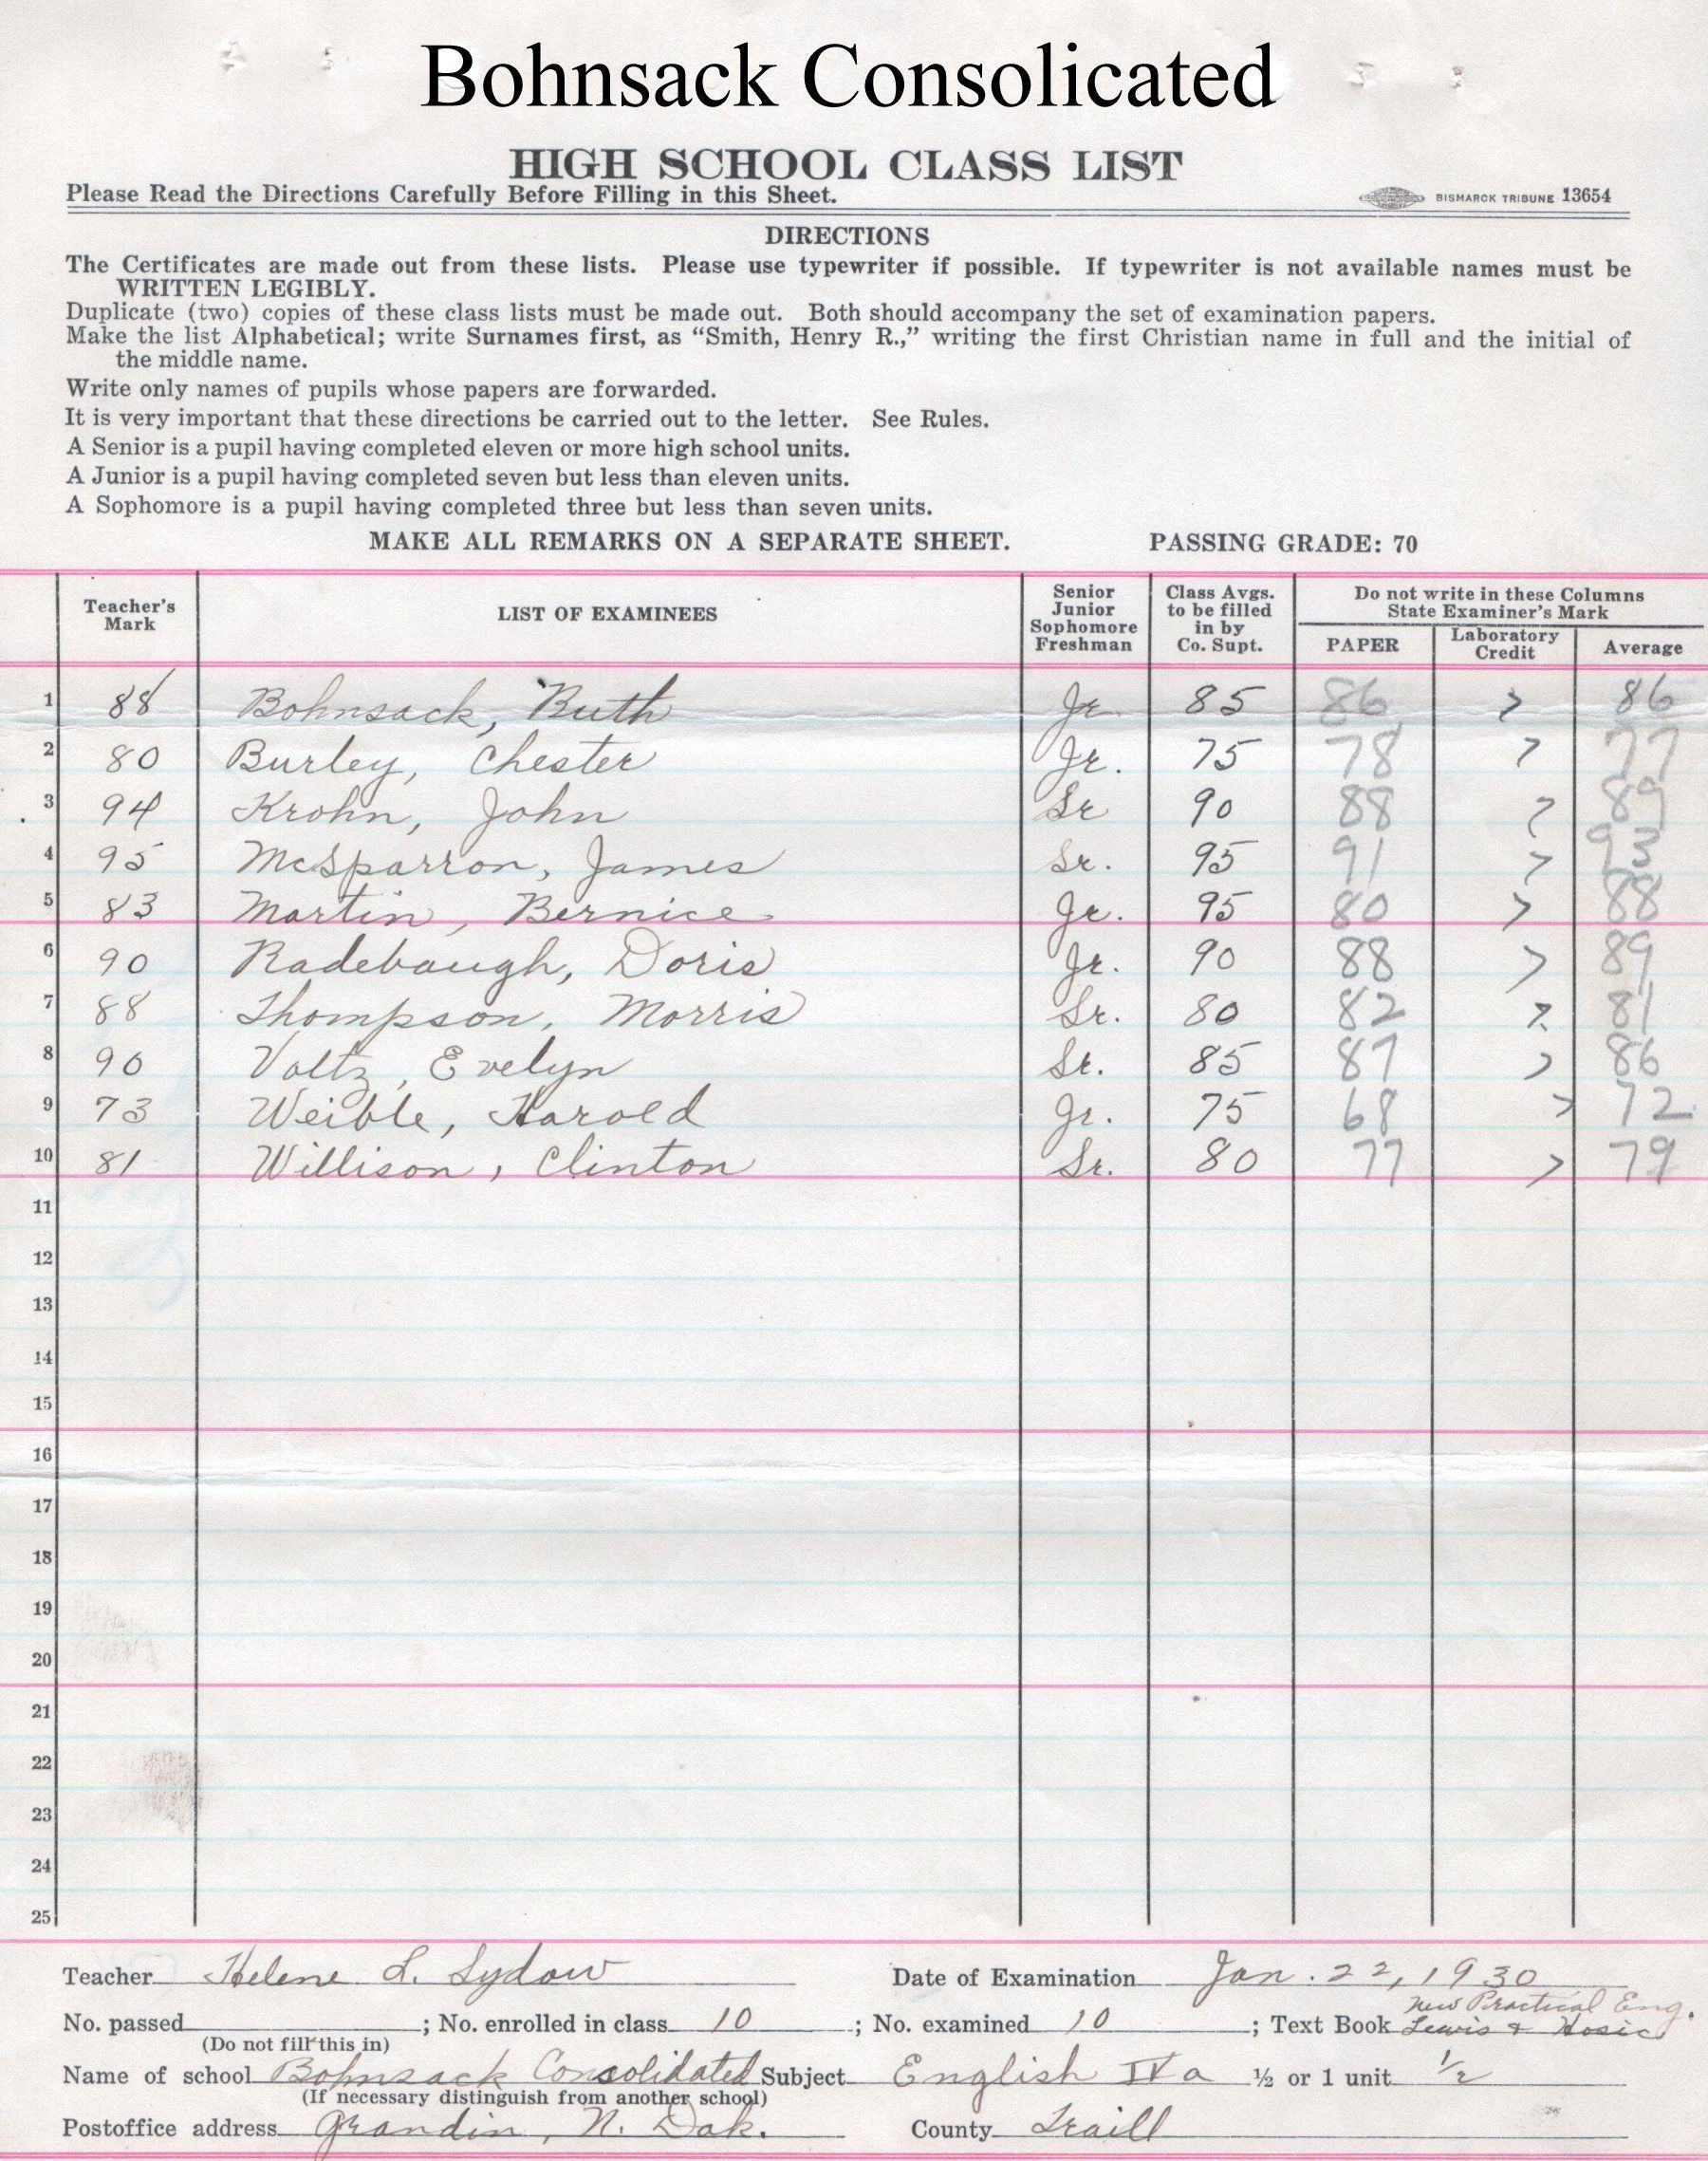 Bohnsack Consolicated
HIGH SCHOOL CLASS LIST
Please Read the Directions Carefully Before Filling in this Sheet. BISMARCK TRIBUNE 13654
DIRECTIONS
The Certificates are made out from these lists. Please use typewriter if possible. If typewriter is not available names must be
WRITTEN LEGIBLY.
Duplicate (two) copies of these class lists must be made out. Both should accompany the set of examination papers.
Make the list Alphabetical; write Surnames first, as “Smith, Henry R.,” writing the first Christian name in full and the initial of
the middle name.
Write only names of pupils whose papers are forwarded.
It is very important that these directions be carried out to the letter. See Rules.
A Senior is a pupil having completed eleven or more high school units.
A Junior is a pupil having completed seven but less than eleven units.
A Sophomore is a pupil having completed three but less than seven units.
MAKE ALL REMARKS ON A SEPARATE SHEET. PASSING GRADE: 70
Teacher's Mark LIST OF EXAMINEES Senior Junior Sophomore Freshman Class Avgs. to be filled in by Co. Supt. Do not write in these Columns State Examiner's Mark
PAPER Laboratory Credit Average
1 88 Bohnsack, Ruth Jr 85 86 86
2 80 Burley, Chester Jr. 75 78 77
3 94 Krohn, John Sr 90 88 89
4 95 McSparron, James Sr. 95 91 93
5 83 Martin, Bernice Jr. 95 80 88
6 90 Radebaugh, Doris Jr. 90 88 89
7 88 Thompson, Morris Sr. 80 82 81
8 90 Voltz, Evelyn Sr. 85 87 86
9 73 Weible, Harold Jr. 75 68 72
10 81 Willison, Clinton Sr. 80 77 79
11
12
13
14
15
16
17
18
19
20
21
22
23
24
25
Teacher Helene L. Sydow Date of Examination Jan. 22, 1930
New Practical Eng.
No. passed ; No. enrolled in class 10 ; No. examined 10 ; Text Book Lewis & Hosic
(Do not fill this in)
Name of school Bohnsack Consolidated Subject English IV a ½ or 1 unit ½
(If necessary distinguish from another school)
Postoffice address Grandin, N. Dak. County Traill